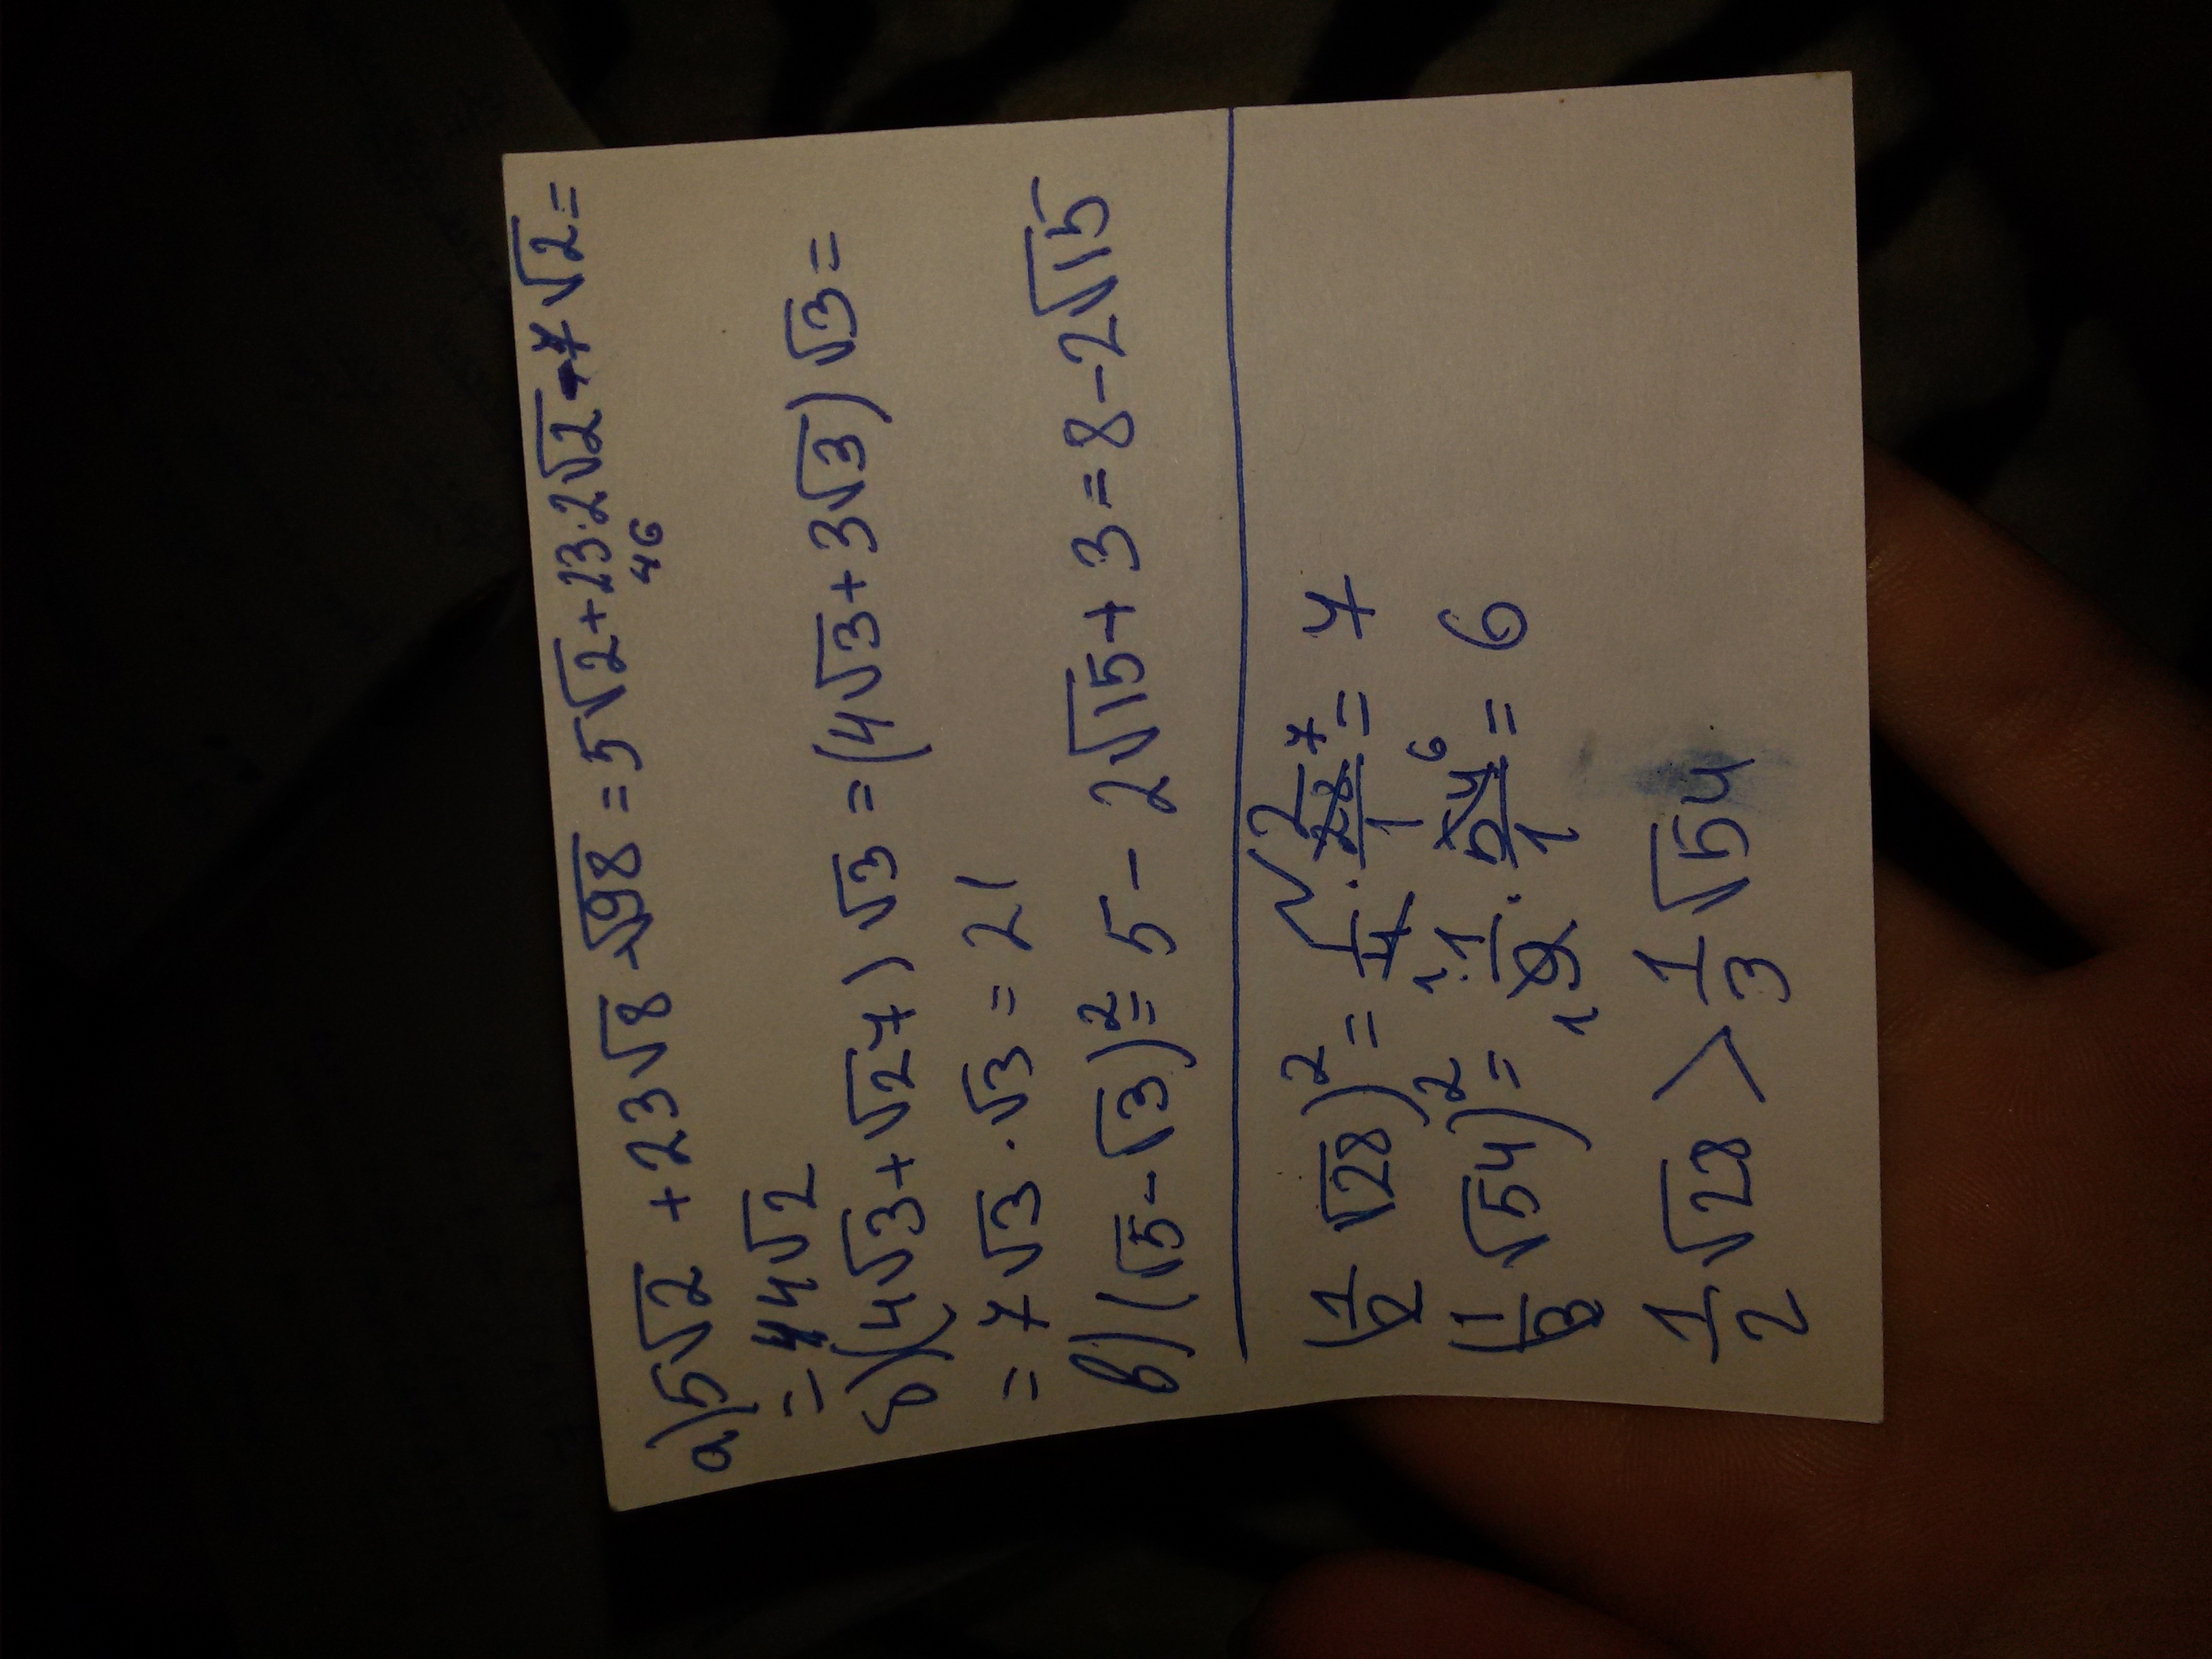 а) 5√2 + 23√8 - √98 = 5√2 + 23·2√2 - 7√2 =
46
= 44√2
б) (4√3 + √27) √3 = (4√3 + 3√3) √3 =
= 7√3 · √3 = 21
в) (√5 - √3)² = 5 - 2√15 + 3 = 8 - 2√15
(1/2 √28)² = 1/4 · 28/1 = 7
(1/3 √54)² = 1/9 · 54/1 = 6
1/2 √28 > 1/3 √54